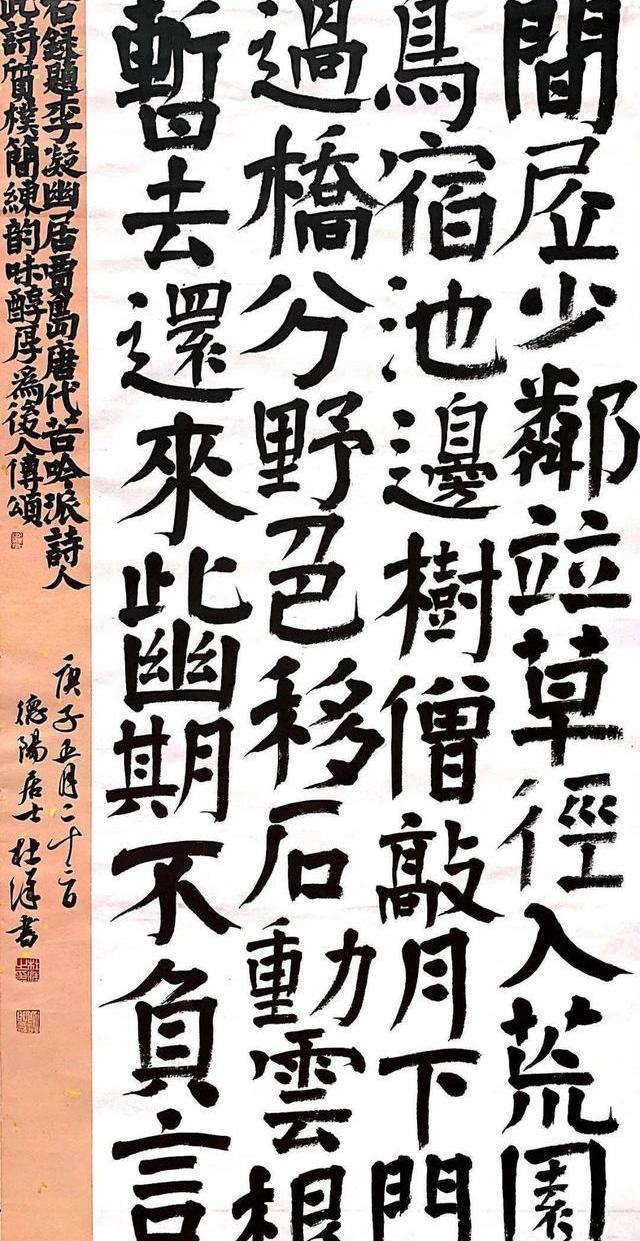 間居少鄰竝草徑入荒園
鳥宿池邊樹僧敲月下門
過橋分野色移石動雲根
暫去還來此幽期不負言
右錄題李凝幽居賈島唐代苦吟派詩人
此詩質樸簡練韵味醇厚爲後人傳頌
庚子五月二十二日
德陽居士杜書